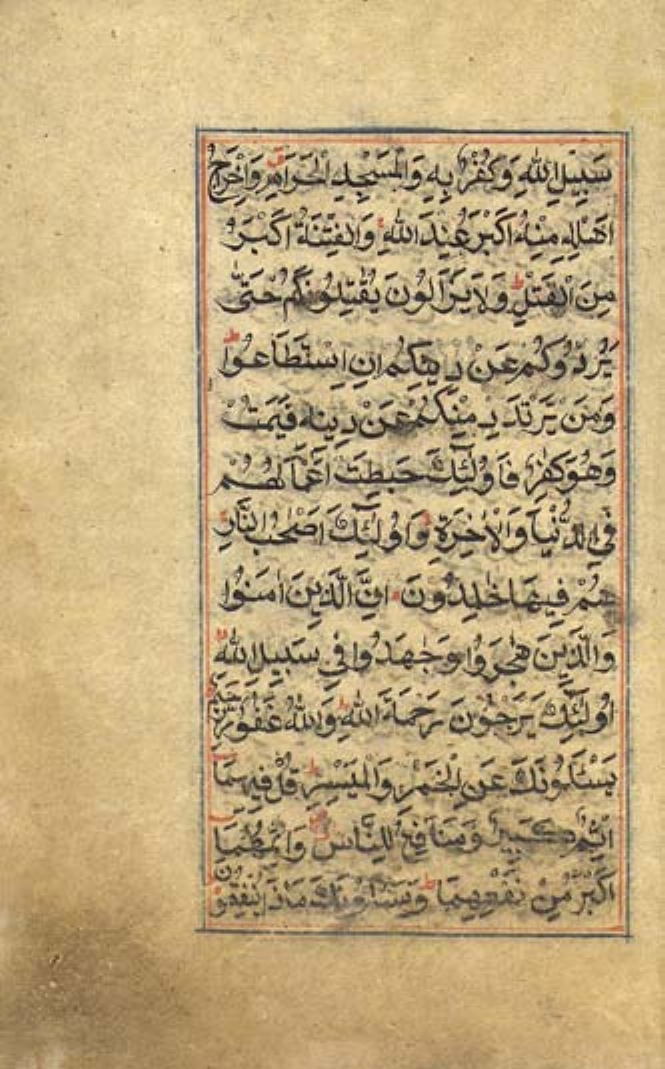 سَبِيلِ اللهِ وَكُفْرٌ بِهِ وَالْمَسْجِدِ الْحَرَامِ وَاِخْرَاجُ
اَهْلِهِ مِنْهُ اَكْبَرُ عِنْدَ اللهِ وَالْفِتْنَةُ اَكْبَرُ
مِنَ الْقَتْلِ وَلَا يَزَالُونَ يُقٰتِلُونَكُمْ حَتّٰى
يَرُدُّوكُمْ عَنْ دِينِكُمْ اِنِ اسْتَطَاعُوا
وَمَنْ يَرْتَدِدْ مِنْكُمْ عَنْ دِينِهِ فَيَمُتْ
وَهُوَ كَافِرٌ فَاُولٰٓئِكَ حَبِطَتْ اَعْمَالُهُمْ
فِى الدُّنْيَا وَالْاٰخِرَةِ وَاُولٰٓئِكَ اَصْحٰبُ النَّارِ
هُمْ فِيهَا خٰلِدُونَ اِنَّ الَّذِينَ اٰمَنُوا
وَالَّذِينَ هَاجَرُوا وَجٰهَدُوا فِى سَبِيلِ اللهِ
اُولٰٓئِكَ يَرْجُونَ رَحْمَةَ اللهِ وَاللهُ غَفُورٌ رَحِيمٌ
يَسْـَٔلُونَكَ عَنِ الْخَمْرِ وَالْمَيْسِرِ قُلْ فِيهِمَا
اِثْمٌ كَبِيرٌ وَمَنَافِعُ لِلنَّاسِ وَاِثْمُهُمَا
اَكْبَرُ مِنْ نَفْعِهِمَا وَيَسْـَٔلُونَكَ مَاذَا يُنْفِقُونَ